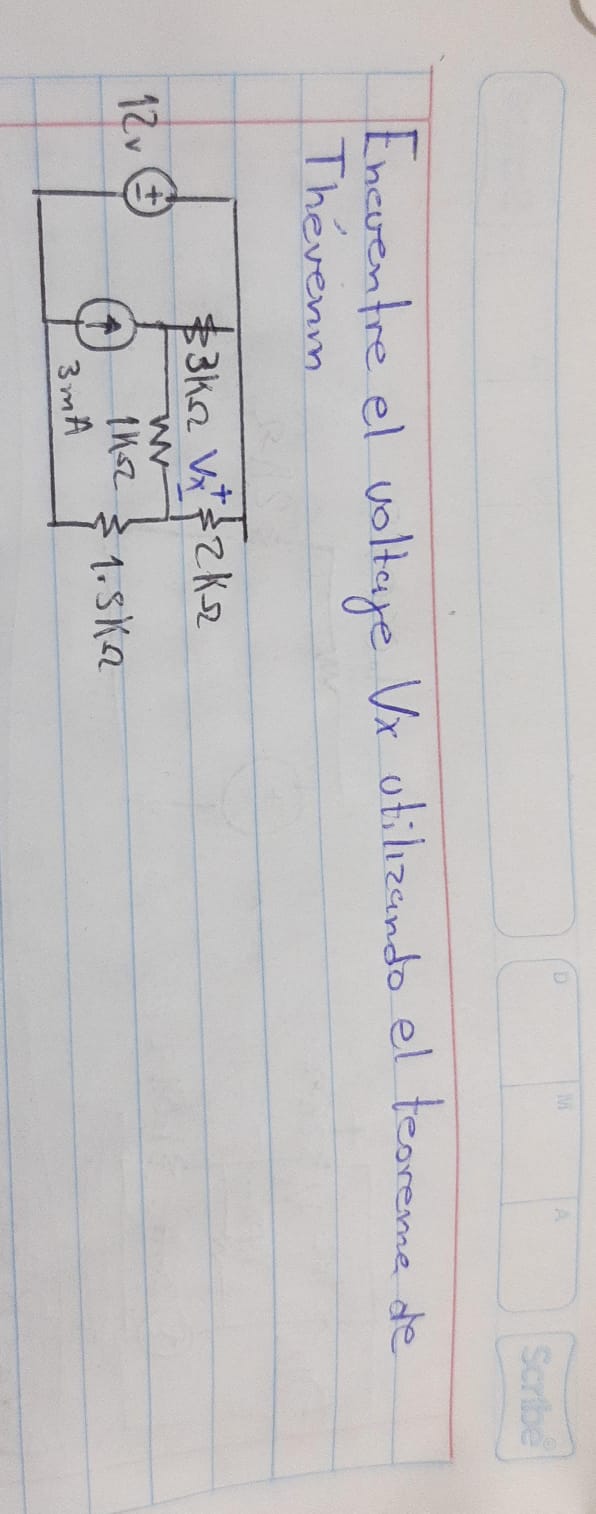 D M A Scribe®
Encuentre el voltaje Vx utilizando el teorema de
Thévenin
3KΩ Vx + 2KΩ
-
12v + -
1KΩ 1.5KΩ
3mA